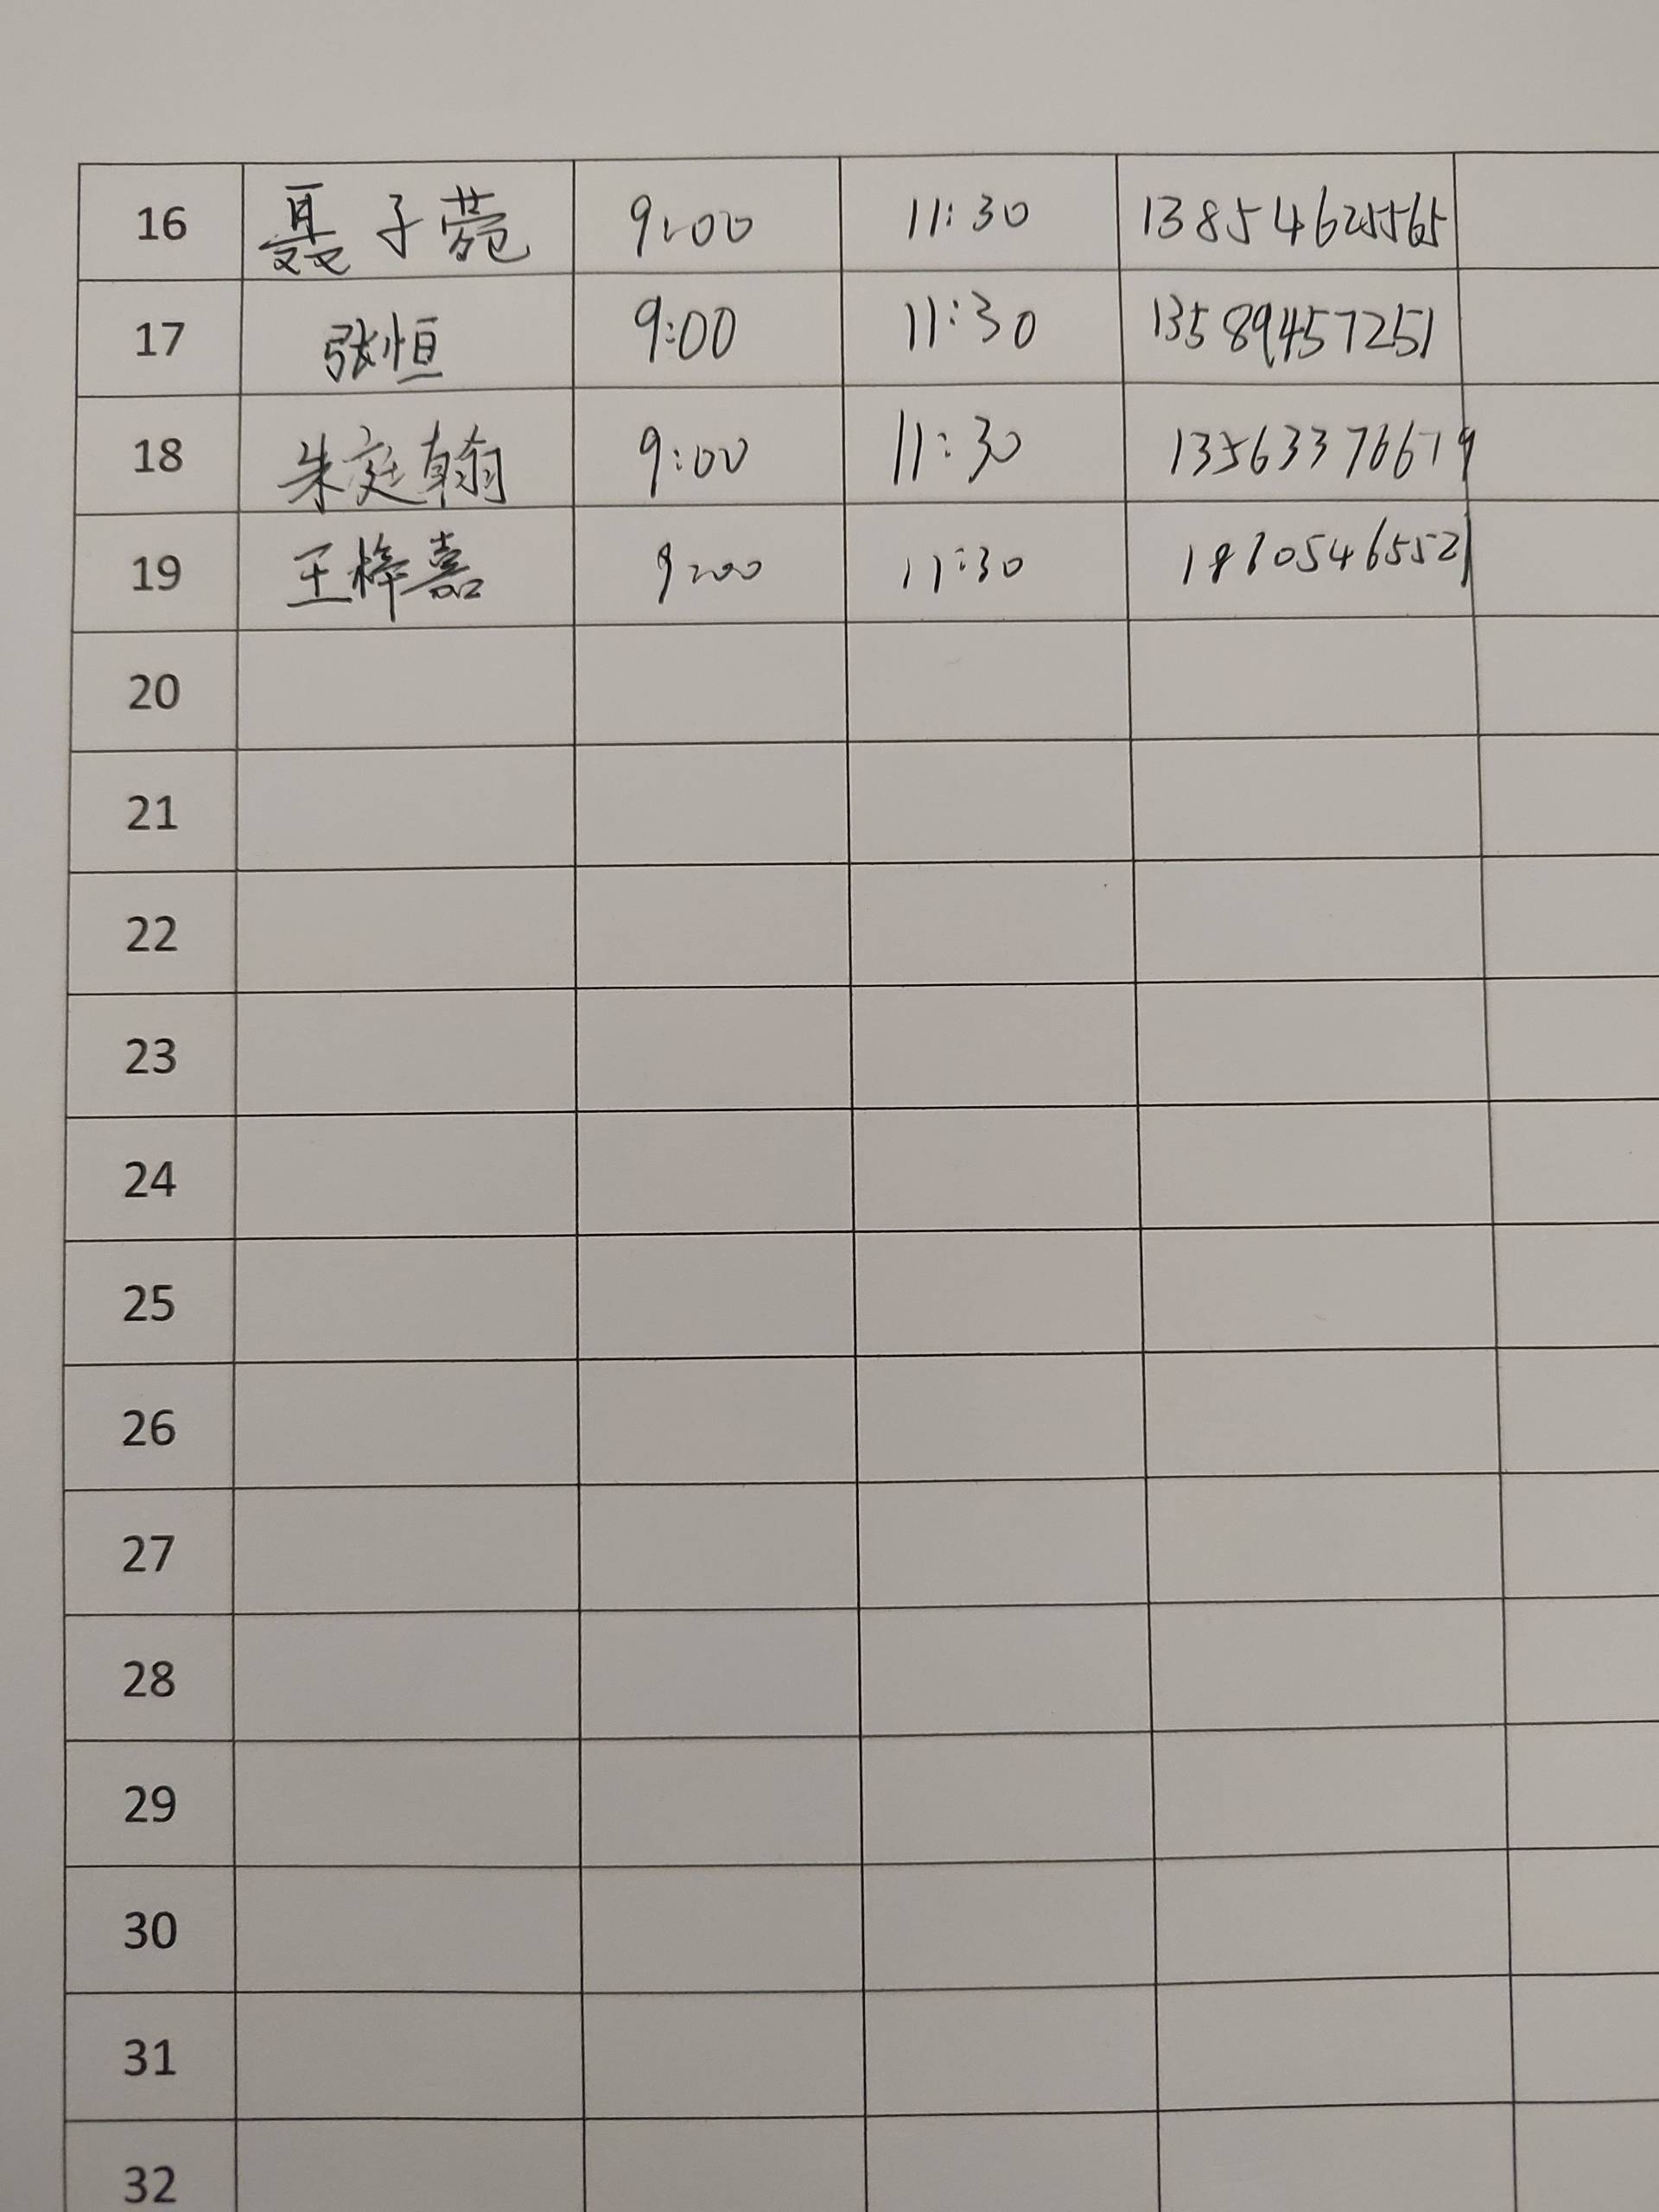 16 聂子菀 9:00 11:30 13854625565
17 张恒 9:00 11:30 13589457251
18 朱庭翰 9:00 11:30 13563376679
19 王梓嘉 9:00 11:30 18605465521
20
21
22
23
24
25
26
27
28
29
30
31
32